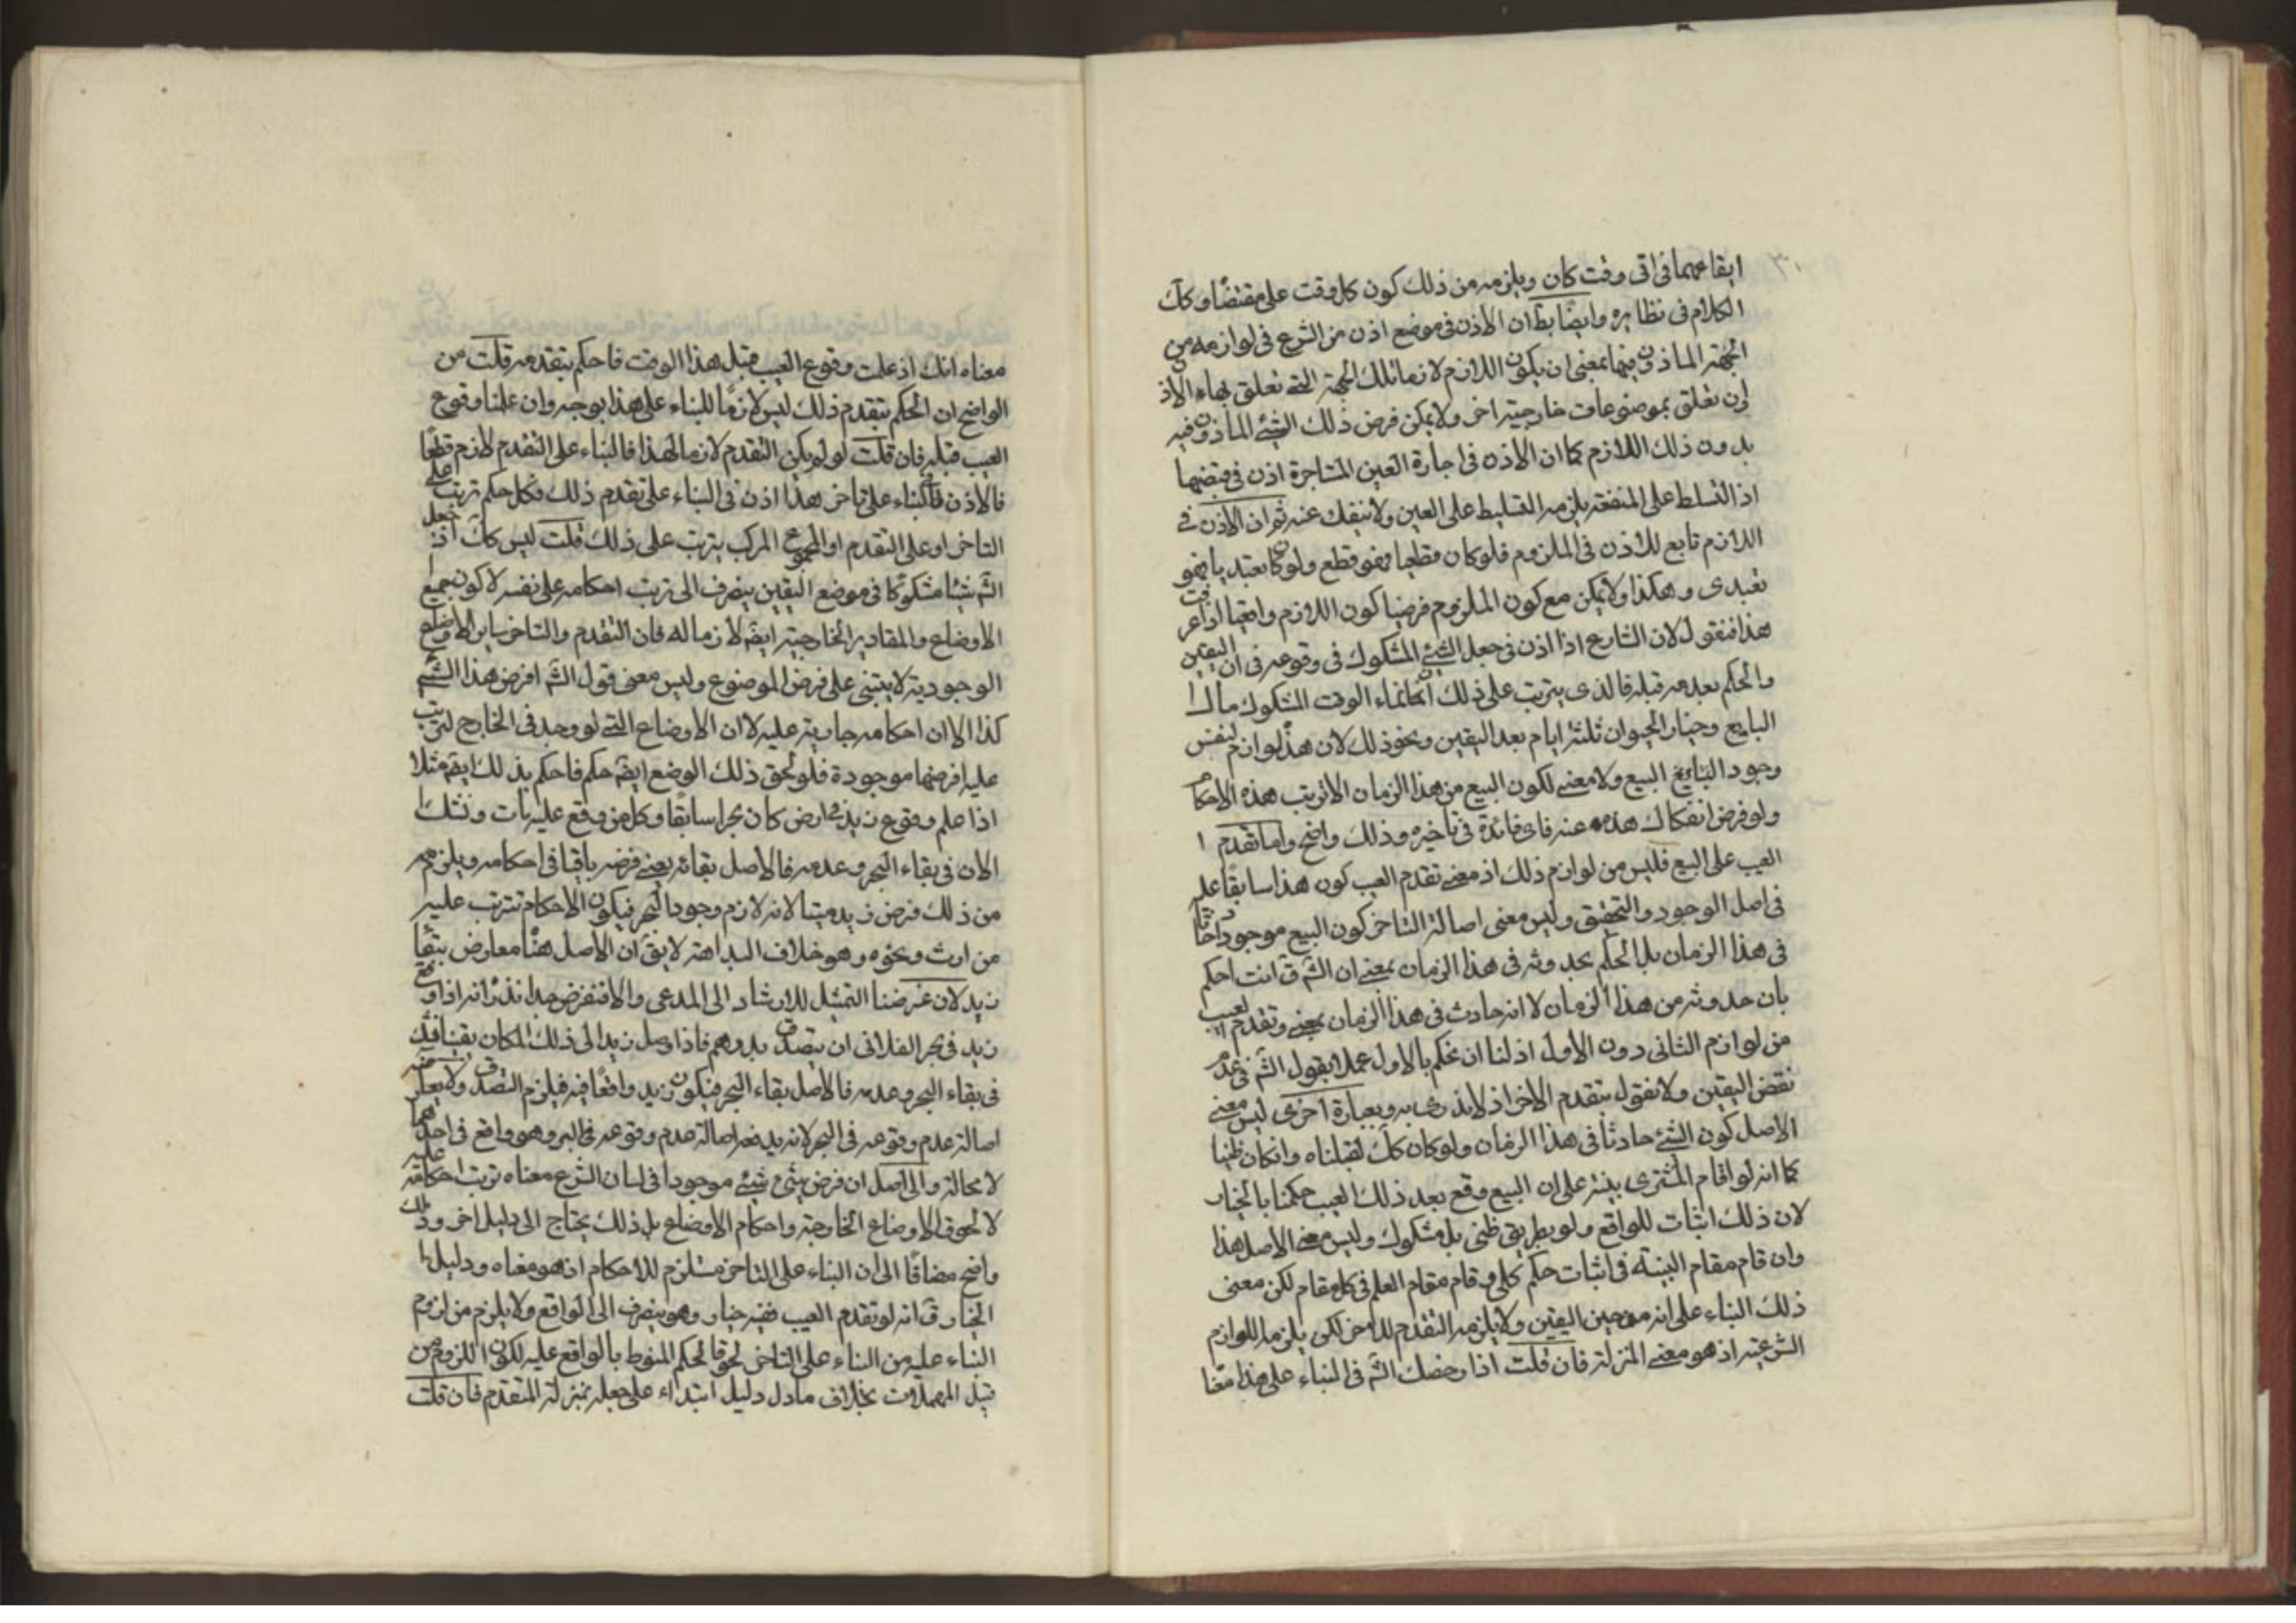 ايقاعهما فی ای وقت كان ويلزمه من ذلك كون كل وقت علی مقتضا وكك
الكلام فی نظايره وايضا بط ان الاذن فی موضع اذن من الشرع فی لوازمه من
الجهة الماذون فيها بمعنی ان يكون اللازم لازما لتلك الجهة التی تعلق بها الاذ
لن تعلق بموضوعات خارجية اخر ولا يمكن فرض ذلك الشیء الماذون فيه
بدون ذلك اللازم كما ان الاذن فی اجارة العين المستاجرة اذن فی قبضها
اذ التسلط علی المنفعة يلزمه التسليط علی العين ولا ينفك عنه ثم ان الاذن فی
اللازم تابع للاذن فی الملزوم فلو كان قطعيا فهو قطع ولو كان تعبديا فهو
تعبدی وهكذا ولا يمكن مع كون الملزوم فرضيا كون اللازم واقعيا اذا عرفت
هذا فنقول لان الشارع اذا اذن فی جعل الشیء المشكوك فی وقوعه فی ان اليقين
والحكم بعدمه قبله فالذی يترتب علی ذلك انما نماء الوقت المشكوك مال ا
البايع وخيار الحيوان ثلثة ايام بعد اليقين ونحو ذلك لان هذه لوازم لنفس
وجود البيع ولا معنی لكون البيع من هذا الزمان الا ترتب هذه الاحكام
ولو فرض انفكاك هذه عنه فای فائدة فی تاخيره وذلك واضح واما تقدم ا
العيب علی البيع فليس من لوازم ذلك اذ معنی تقدم العيب كون هذا سابقا عليه
فی اصل الوجود والتحقيق وليس معنی اصالة التاخر كون البيع موجودا حادثا
فی هذا الزمان بل الحكم بحدوثه فی هذا الزمان بمعنی ان الشم ق انت احكم
بان حدوثه من هذا الزمان لا انه حادث فی هذا الزمان بمعنی وتقدم العيب
من لوازم الثانی دون الاول اذ لنا ان نحكم بالاول عملا بقول الشم فی عدم
نقض اليقين ولا نقول بتقدم الاخر اذ لا ندری به وبعبارة اخری ليس معنی
الاصل كون الشیء حادثا فی هذا الزمان ولو كان كك لقبلناه وانكان ظنيا
كما انه لو اقام المشتری بينة علی ان البيع وقع بعد ذلك العيب حكمنا بالخيار
لان ذلك اثبات للواقع ولو بطريق ظنی بل مشكوك وليس معنی الاصل هذا
وان قام مقام البينة فی اثبات حكم كلی وقام مقام العلم فی كل مقام لكن معنی
ذلك البناء علی انه من حين اليقين ولا يلزمه التقدم للاخر لكن يلزمه اللوازم
الشرعية اذ هو معنی المنزلة فان قلت اذا رخصك الشم فی البناء علی هذا
معناه انك اذ علمت وقوع العيب قبل هذا الوقت فاحكم بتقدمه قلت من
الواضح ان الحكم بتقدم ذلك ليس لازما للبناء علی هذا بوجه وان علمنا وقوع
العيب قبله فان قلت لو لم يكن التقدم لازما لهذا فالبناء علی التقدم لازم قطعا
فالاذن فی البناء علی تاخر هذا اذن فی البناء علی تقدم ذلك فكل حكم ترتب علی
التاخر او علی التقدم او المجموع المركب يترتب علی ذلك قلت ليس كك اذ جعل
الشم شيئا مشكوكا فی موضع اليقين ينصرف الی ترتب احكامه علی نفسه لا كون جميع
الاوضاع والمقادير الخارجية ايضه لازما له فان التقدم والتاخر وساير الاوضاع
الوجودية لا يبتنی علی فرض الموضوع وليس معنی قول الشم افرض هذا الشیء
كذا الا ان احكامه جارية عليه لا ان الاوضاع التی لو وجد فی الخارج لترتب
عليه افرضها موجودة فلو لحق ذلك الوضع ايضه حكم فاحكم بذلك ايضه مثلا
اذا علم وقوع زيد فی ارض كان بحرا سابقا وكل من وقع عليه مات ونشك ا
الان فی بقاء البحر وعدمه فالاصل بقائه يعنی فرضه باقيا فی احكامه ويلزمهم
من ذلك فرض زيد ميتا لانه لازم وجود البحر فيكون الاحكام تترتب عليه
من ارث ونحوه وهو خلاف البداهة لا يق ان الاصل هنا معارض ببقاء
زيد لان غرضنا التمثيل للارشاد الی المدعی والا فنفرض فيما نذر انه اذا وقع
زيد فی بحر الفلانی ان يتصدق بدرهم فاذا وصل زيد الی ذلك المكان يقينا فشك
فی بقاء البحر وعدمه فالاصل بقاء البحر فيكون زيد واقعا فيه فيلزم التصدق ولا يعارضه
اصالة عدم وقوعه فی البحر لانه يدفعه اصالة عدم وقوعه فی البر وهو واقع فی احدهما
لا محالة والحاصل ان فرض شیء موجودا فی لسان الشرع معناه ترتب احكامه عليه
لا لحوق الاوضاع الخارجية واحكام الاوضاع بل ذلك يحتاج الی دليل اخر وذلك
واضح مضافا الی ان البناء علی التاخر مستلزم للاحكام اذ هو معناه ودليل ا
الخيار ق انه لو تقدم العيب ففيه خيار وهو ينصرف الی الواقع ولا يلزم من لزوم
البناء عليه من البناء علی التاخر لحوق الحكم المنوط بالواقع عليه لكون اللزوم من
قبل المهملات بخلاف ما دل دليل ابتداء علی جعله بمنزلة المتقدم فان قلت